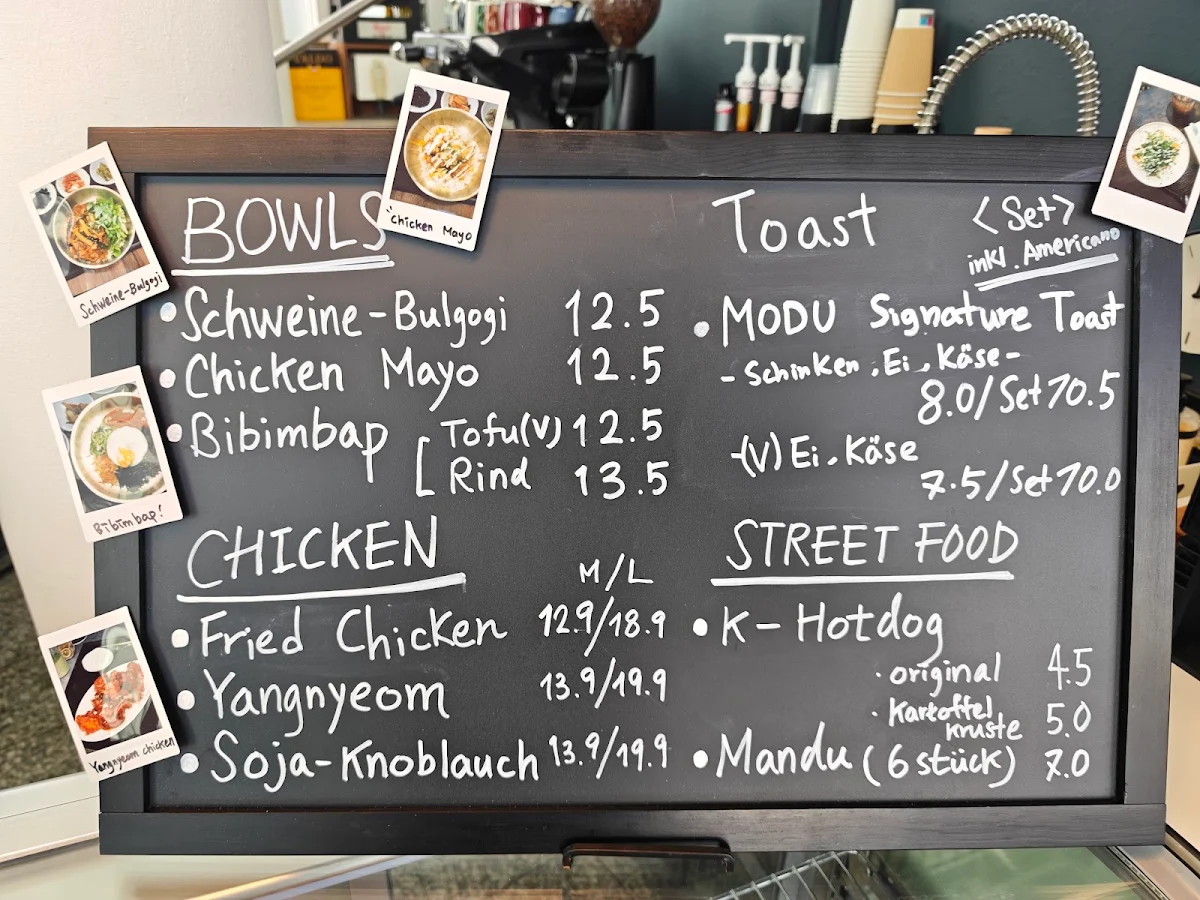 BOWLS
• Schweine-Bulgogi 12.5
• Chicken Mayo 12.5
• Bibimbap [ Tofu(V) 12.5
Rind 13.5
CHICKEN
M/L
• Fried Chicken 12.9/18.9
• Yangnyeom 13.9/19.9
• Soja-Knoblauch 13.9/19.9
Toast <Set>
inkl. Americano
• MODU Signature Toast
- Schinken, Ei, Käse -
8.0/Set 10.5
-(V) Ei, Käse
7.5/Set 10.0
STREET FOOD
• K-Hotdog
· original 4.5
· Kartoffel
kruste 5.0
• Mandu (6 stück) 7.0
Chicken Mayo
Schweine-Bulgogi
Bibimbap!
Yangnyeom chicken